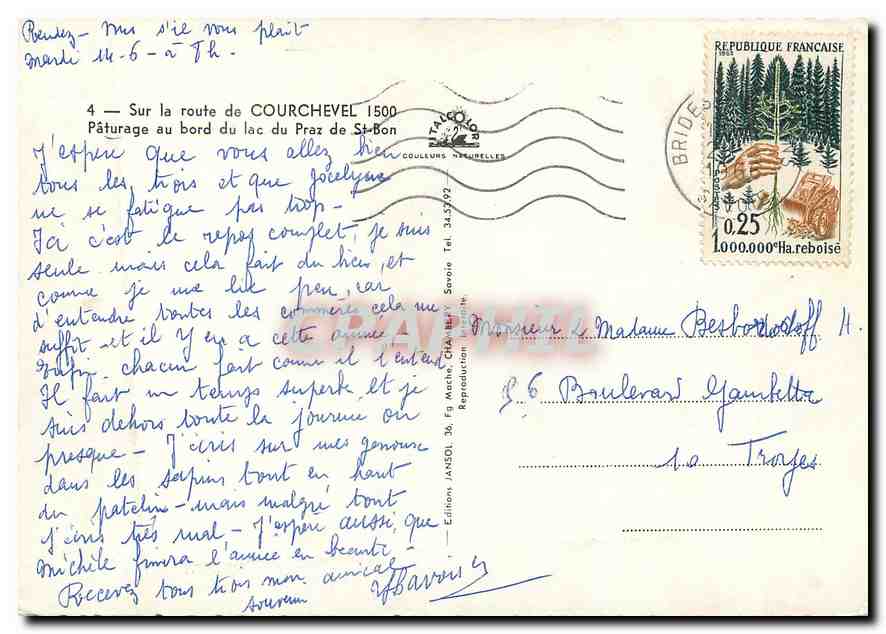 Rendez-vous s'il vous plait
Mardi 14-6- à 8h.
4 — Sur la route de COURCHEVEL 1500
Pâturage au bord du lac du Praz de St-Bon
J'espère que vous allez bien
tous les trois et que Jocelyne
ne se fatigue pas trop-
Ici c'est le repos complet, je suis
seule mais cela fait du bien, et
comme je me lie peu, car
d'entendre toutes les commères cela me
suffit et il y en a cette année!
Enfin chacun fait comme il l'entend
Il fait un temps superbe, et je
suis dehors toute la journée ou
presque - J'écris sur mes genoux
dans les sapins tout en haut
du patelin - mais malgré tout
j'écris très mal - J'espère aussi que
Michèle finira l'année en beauté -
Recevez tous trois mon amical
souvenir
ITALCOLOR
COULEURS NATURELLES
— Editions JANSOL, 36, Fg Mache, CHAMBERY Savoie Tel. 34.59.92 —
Reproduction interdite
REPUBLIQUE FRANCAISE
1965
0,25
1.000.000e Ha. reboisé
BRIDES
Monsieur & Madame
56 Boulevard Gambetta
10 Troyes